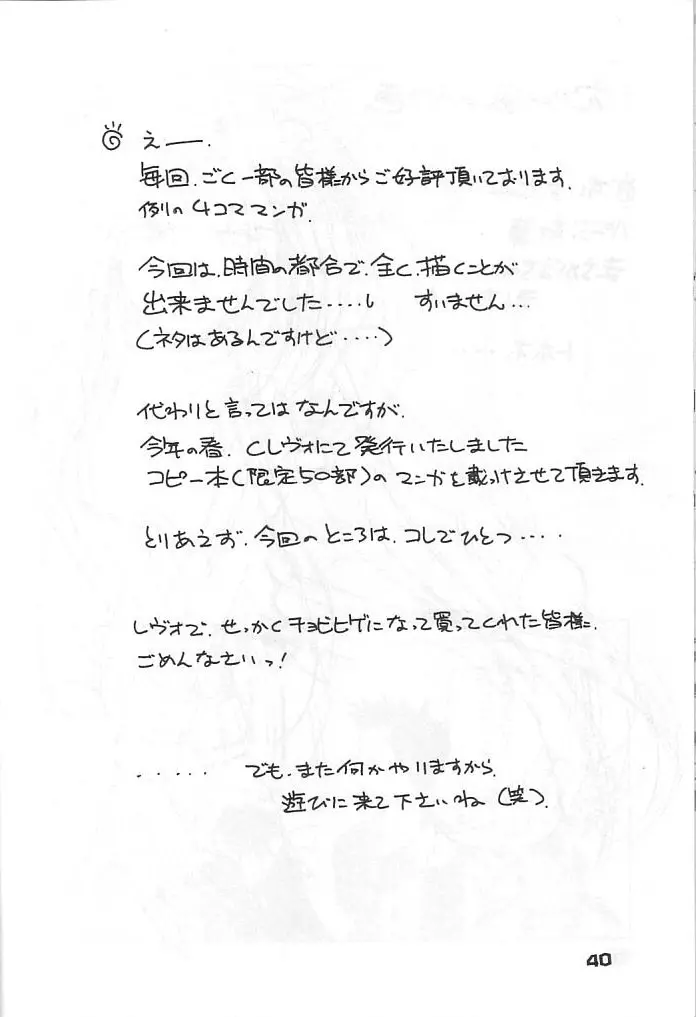 えー.
毎回.ごく一部の皆様からご好評頂いております.
例の4コママンガ.
今回は.時間の都合で.全く.描くことが
出来ませんでした‥‥し すいません…
(ネタはあるんですけど‥‥)
代わりと言ってはなんですが.
今年の春.Cレヴォにて発行いたしました
コピー本(限定50部)のマンガを載っけさせて頂きます.
とりあえず.今回のところは.コレでひとつ‥‥
レヴォで.せっかくチョビヒゲになって買ってくれた皆様.
ごめんなさいっ!
.....でも.また何かやりますから.
遊びに来て下さいね(笑).
40